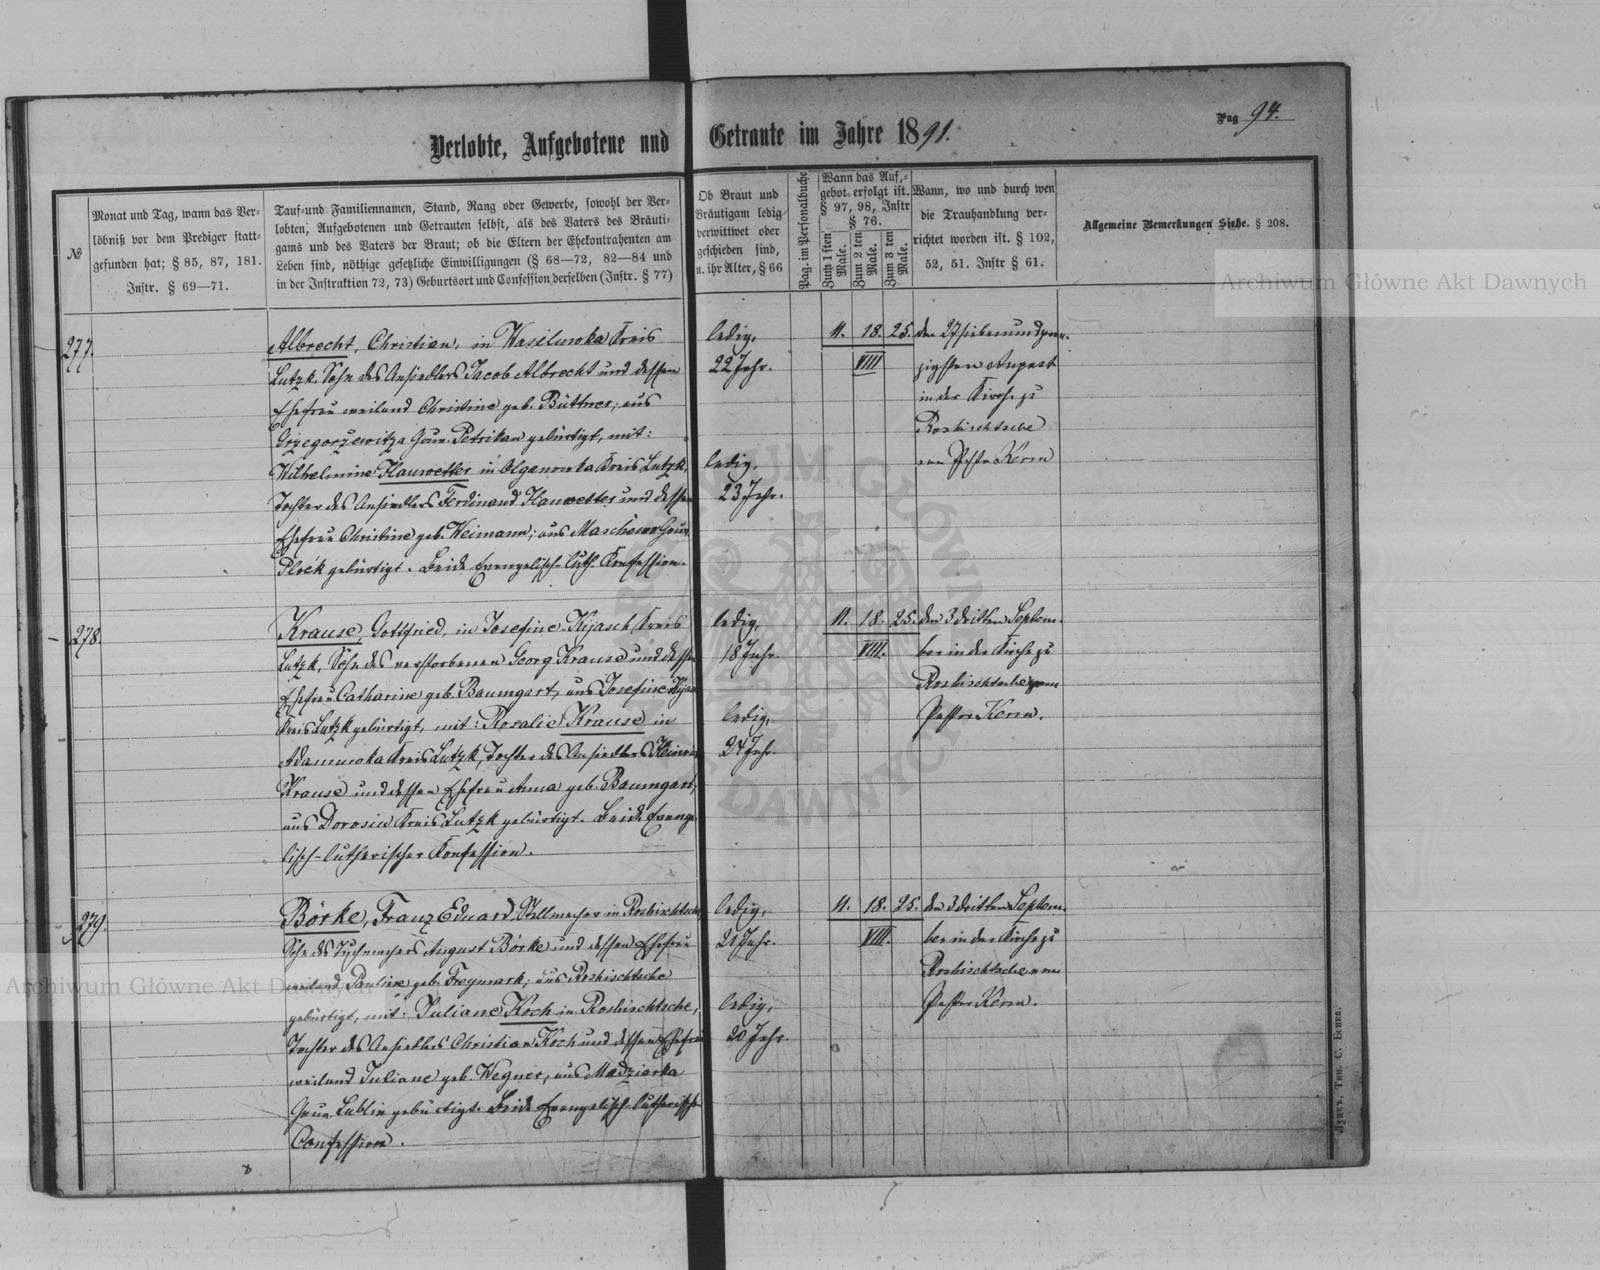 Pag 94.
Verlobte, Aufgebotene und Getraute im Jahre 1891.
№
Monat und Tag, wann das Ver-
löbniß vor dem Prediger statt-
gefunden hat; § 85, 87, 181.
Instr. § 69—71.
Tauf-und Familiennamen, Stand, Rang oder Gewerbe, sowohl der Ver-
lobten, Aufgebotenen und Getrauten selbst, als des Vaters des Bräuti-
gams und des Vaters der Braut; ob die Eltern der Ehekontrahenten am
Leben sind, nöthige gesetzliche Einwilligungen (§ 68—72, 82—84 und
in der Instruktion 72, 73) Geburtsort und Confession derselben (Instr. § 77)
Ob Braut und
Bräutigam ledig
verwittwet oder
geschieden sind,
u. ihr Alter, § 66
Pag. im Personalbuche
Wann das Auf-
gebot erfolgt ist.
§ 97, 98, Instr
§ 76.
Zum 1 sten Male.
Zum 2 ten Male.
Zum 3 ten Male.
Wann, wo und durch wen
die Trauhandlung ver-
richtet worden ist. § 102,
52, 51. Instr § 61.
Allgemeine Bemerkungen Siehe. § 208.
Archiwum Główne Akt Dawnych
277.
Albrecht, Christian, in Wasilewka Kreis
Lutzk, Sohn des Ansiedlers Jacob Albrecht und dessen
Ehefrau weiland Christine geb. Büttner, aus
Grzegorzewitza Gouv. Petrikau gebürtigt, mit:
Wilhelmine Hauwetter in Olganowka Kreis Lutzk,
Tochter des Ansiedlers Ferdinand Hauwetter und dessen
Ehefrau Christine geb. Weimann, aus Maschewo Gouv.
Plock gebürtigt. Beide Evangelisch-luth. Konfession.
ledig,
22 Jahr.
ledig,
23 Jahr.
11. 18. 25.
VIII
den 27 siebenundzwan-
zigsten August
in der Kirche zu
Roshischtsche
von Pastor Kerm
278.
Krause, Gottfried, in Josefine-Kijasch Kreis
Lutzk, Sohn des verstorbenen Georg Krause und dessen
Ehefrau Catharine geb. Baumgart, aus Josefine-Kijas
Kreis Lutzk gebürtigt, mit: Rosalie Krause in
Adamowka Kreis Lutzk, Tochter des Ansiedlers Heinrich
Krause und dessen Ehefrau Anna geb. Baumgart,
aus Dorosin Kreis Lutzk gebürtigt. Beide Evange-
lisch-lutherischer Konfession.
ledig,
18 Jahr.
ledig,
24 Jahr.
11. 18. 25.
VIII.
den 3 dritten Septem-
ber in der Kirche zu
Roshischtsche vom
Pastor Kerm.
279.
Börke, Franz Eduard, Stellmacher in Roshischtsche,
Sohn des Tuchmachers August Börke und dessen Ehefrau
weiland Pauline geb. Freymark, aus Roshischtsche
gebürtigt, mit: Juliane Koch in Roshischtsche,
Tochter des Ansiedlers Christian Koch und dessen Ehefrau
weiland Juliane geb. Wegner, aus Madziarka
Gouv. Lublin gebürtigt. Beide Evangelisch-lutherischer
Confession.
ledig,
21 Jahr.
ledig,
20 Jahr.
11. 18. 25.
VIII.
den 3 dritten Septem-
ber in der Kirche zu
Roshischtsche vom
Pastor Kerm.
Archiwum Główne Akt Dawnych
Луцкъ, Тип. С. Бенка.